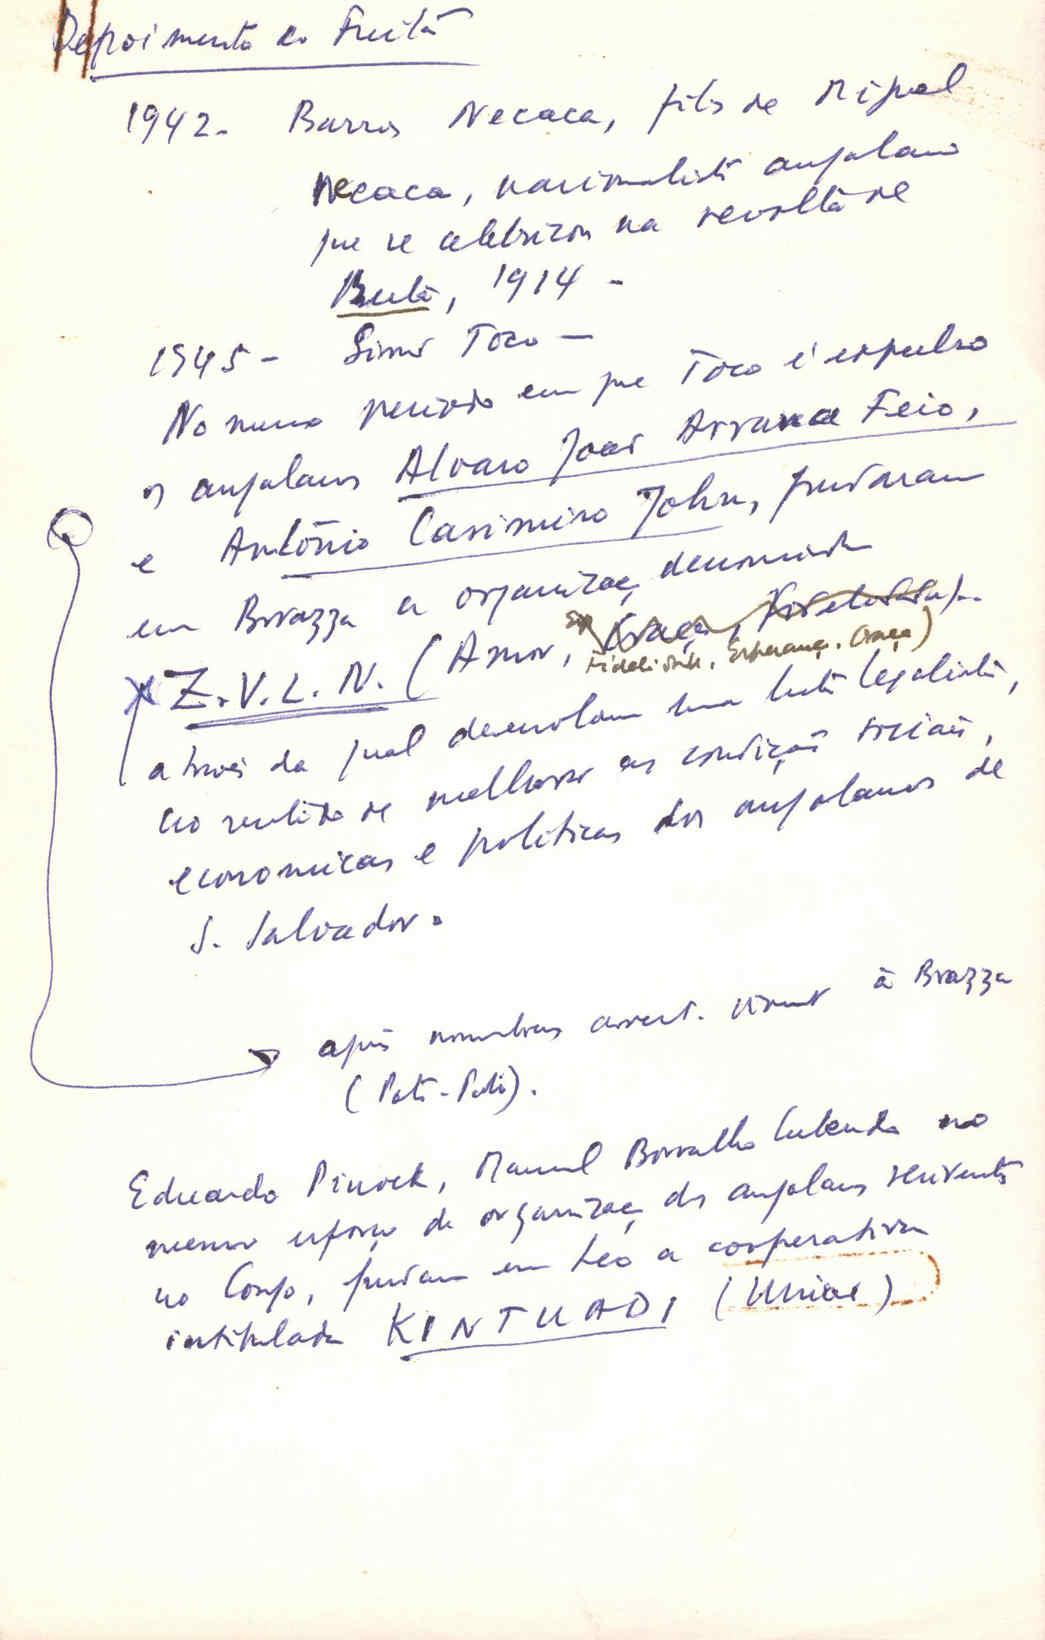 Depoimento do Freitã
1942 - Barros Necaca, filho de Miguel
Necaca, nacionalista angolano
que se celebrizou na revolta de
Buta, 1914 -
1945 - Simão Toco -
No mesmo período em que Toco é expulso
os angolanos Alvaro João Feio,
e António Casimiro John, fundaram
em Brazza a organizaç denominada
Z.V.L.N. (Amor, Graça, Fidelidade)
Fidelidade, Esperança, Graça)
através da qual desenvolvem uma luta legalista,
no sentido de melhorar as condições sociais,
economicas e politicas dos angolanos de
S. Salvador.
após à Brazza
(Poto-Poto).
Eduardo Pinock, Manuel Borralho Lubendo no
mesmo esforço de organizaç dos angolanos
no Congo, fundam em Leo a cooperativa
intitulada KINTUADI (União)